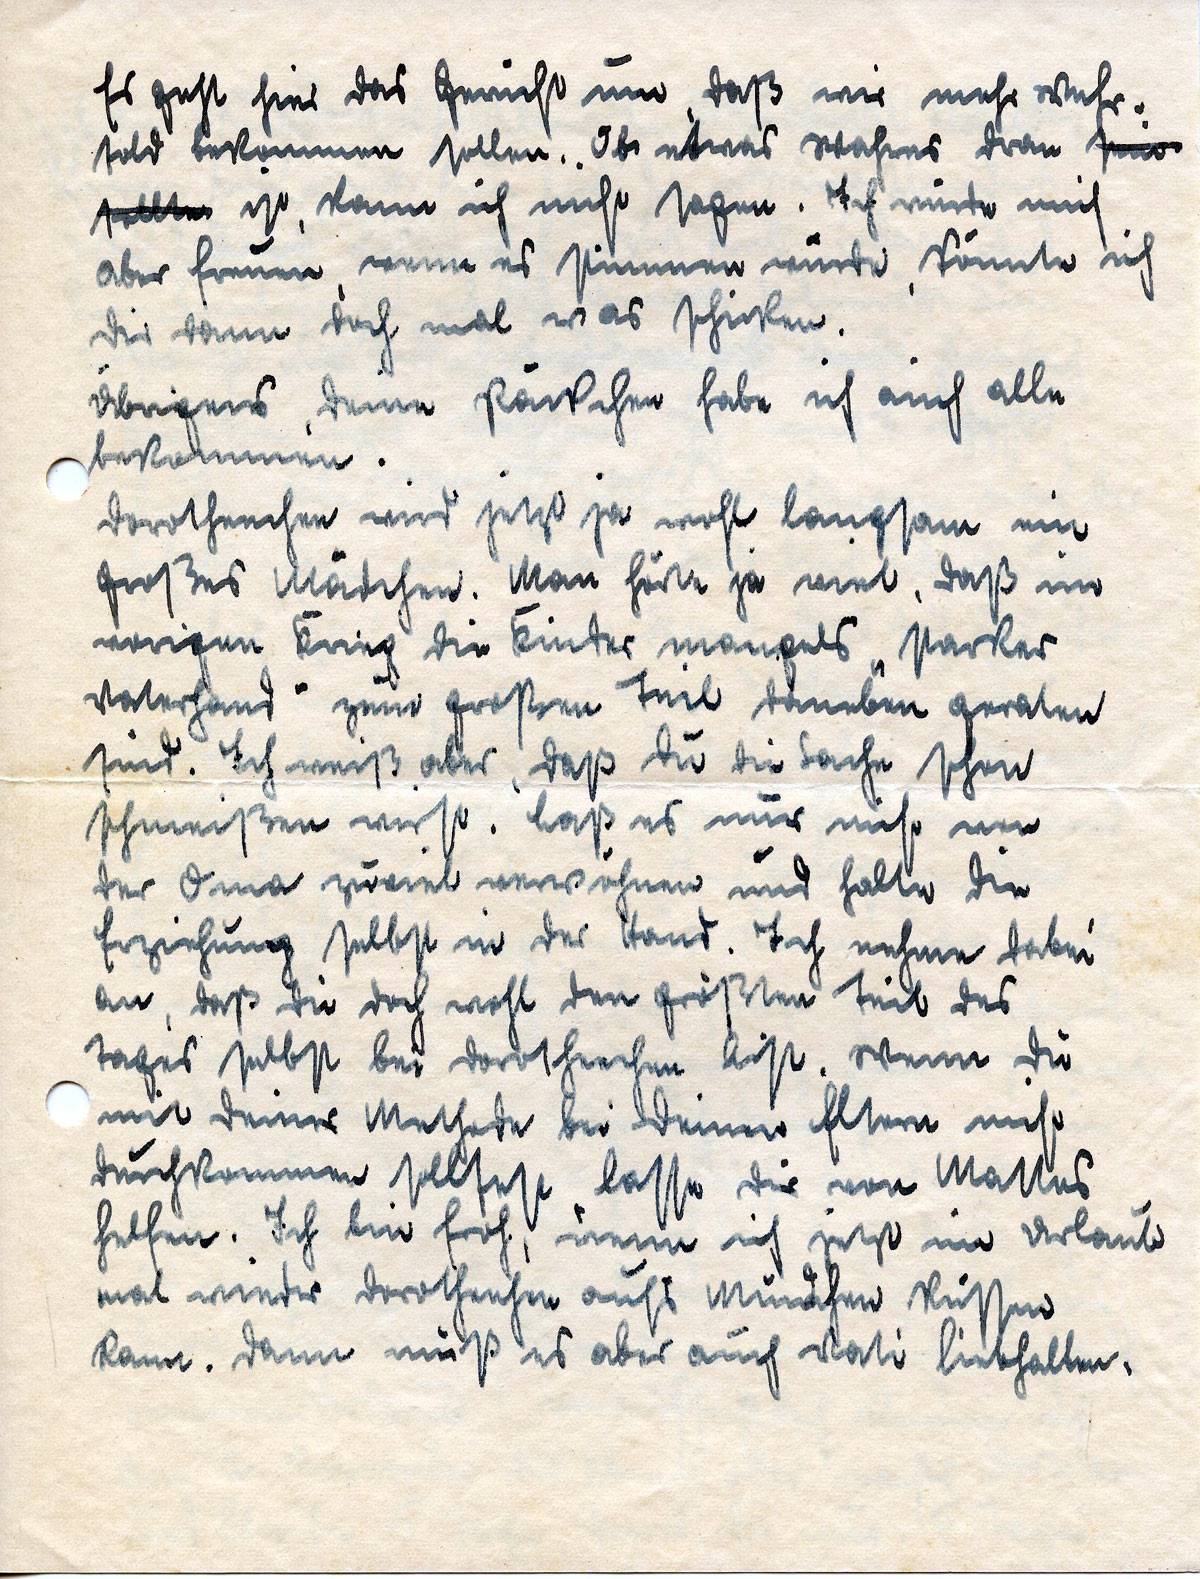 Es geht hier das Gerücht um, daß wir mehr Wehr-
sold bekommen sollen. Ob etwas Wahres dran sein
sollte ist, kann ich nicht sagen. Ich würde mich
aber freuen, wenn es stimmen würde, könnte ich
Dir dann doch mal was schicken.
Übrigens, Deine Päckchen habe ich auch alle
bekommen.
Dorotheechen wird jetzt ja wohl langsam ein
großes Mädchen. Man hört ja viel, daß im
vorigen Krieg die Kinder mangels „starker
Vaterhand" zum großen Teil daneben geraten
sind. Ich weiß aber, daß Du die Sache schon
schmeißen wirst. Laß es nur nicht von
der Oma zuviel verwöhnen und halte die
Erziehung selbst in der Hand. Ich nehme dabei
an, daß Du doch wohl den größten Teil des
Tages selbst bei Dorotheechen bist. Wenn Du
mit Deiner Methode bei Deinen Eltern nicht
durchkommen solltest, lasse Dir von Mattes
helfen. Ich bin froh, wenn ich jetzt im Urlaub
mal wieder Dorotheechen aufs Mündchen küssen
kann. Dann muß es aber auch Vati liebhalten.